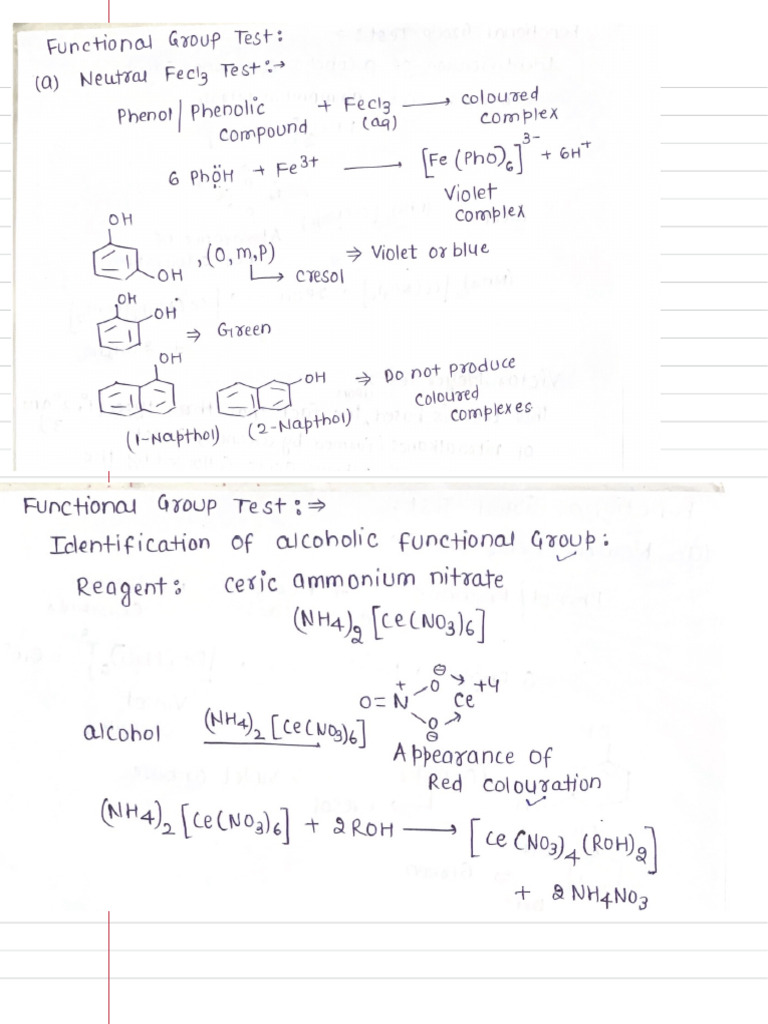 Functional Group Test:
(a) Neutral Fecl3 Test:→
Phenol/Phenolic compound + Fecl3 (aq) → coloured complex
6 PhÖH + Fe3+ → [Fe(PhO)6]3- + 6H+
Violet complex
OH
OH , (O, m, P) ⇒ Violet or blue
↳ cresol
OH
OH ⇒ Green
OH
OH ⇒ Do not produce coloured complexes
(1-Napthol) (2-Napthol)
Functional Group Test:⇒
Identification of alcoholic functional Group:
Reagent: ceric ammonium nitrate
(NH4)2 [Ce(NO3)6]
O=N+ O⊖ O⊖ Ce +4
alcohol (NH4)2 [Ce(NO3)6]
Appearance of
Red colouration
(NH4)2 [Ce(NO3)6] + 2ROH → [Ce(NO3)4(ROH)2]
+ 2NH4NO3